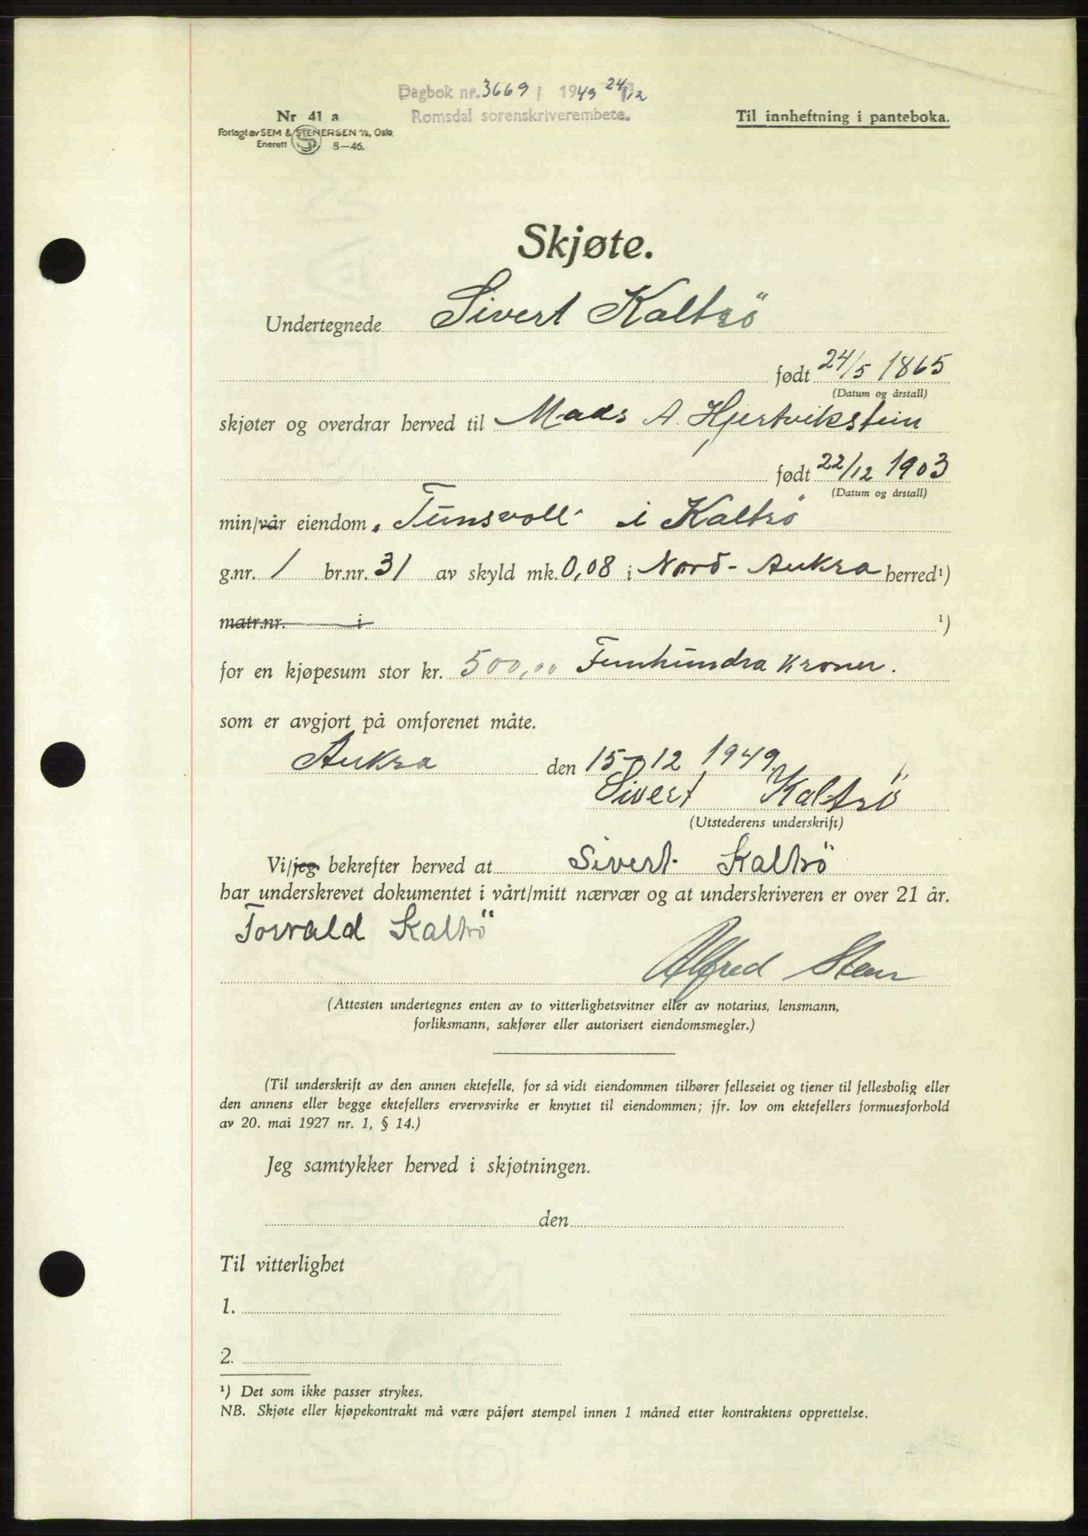 Dagbok nr. 3669 / 1949 24/12
Romsdal sorenskriverembete.
Nr 41 a
Forlagt av SEM & STENERSEN A/S, Oslo
Enerett 8-46.
Til innheftning i panteboka.
Skjøte.
Undertegnede Sivert Kaltrö
født 24/5 1865
(Datum og årstall)
skjøter og overdrar herved til Mads A. Hjertvikstein
født 22/12 1903
(Datum og årstall)
min/vår eiendom "Tunsvoll" i Kaltrö
g.nr. 1 br.nr. 31 av skyld mk. 0,08 i Nord-Aukra herred¹)
matr.nr. i ¹)
for en kjøpesum stor kr. 500,00 Femhundra kroner.
som er avgjort på omforenet måte.
Aukra den 15-12 1949
Sivert Kaltrö
(Utstederens underskrift)
Vi/jeg bekrefter herved at Sivert Kaltrö
har underskrevet dokumentet i vårt/mitt nærvær og at underskriveren er over 21 år.
Torvald Kaltrö
Alfred Sten
(Attesten undertegnes enten av to vitterlighetsvitner eller av notarius, lensmann,
forliksmann, sakfører eller autorisert eiendomsmegler.)
(Til underskrift av den annen ektefelle, for så vidt eiendommen tilhører felleseiet og tjener til fellesbolig eller
den annens eller begge ektefellers ervervsvirke er knyttet til eiendommen; jfr. lov om ektefellers formuesforhold
av 20. mai 1927 nr. 1, § 14.)
Jeg samtykker herved i skjøtningen.
den
Til vitterlighet
1.
2.
¹) Det som ikke passer strykes.
NB. Skjøte eller kjøpekontrakt må være påført stempel innen 1 måned etter kontraktens opprettelse.